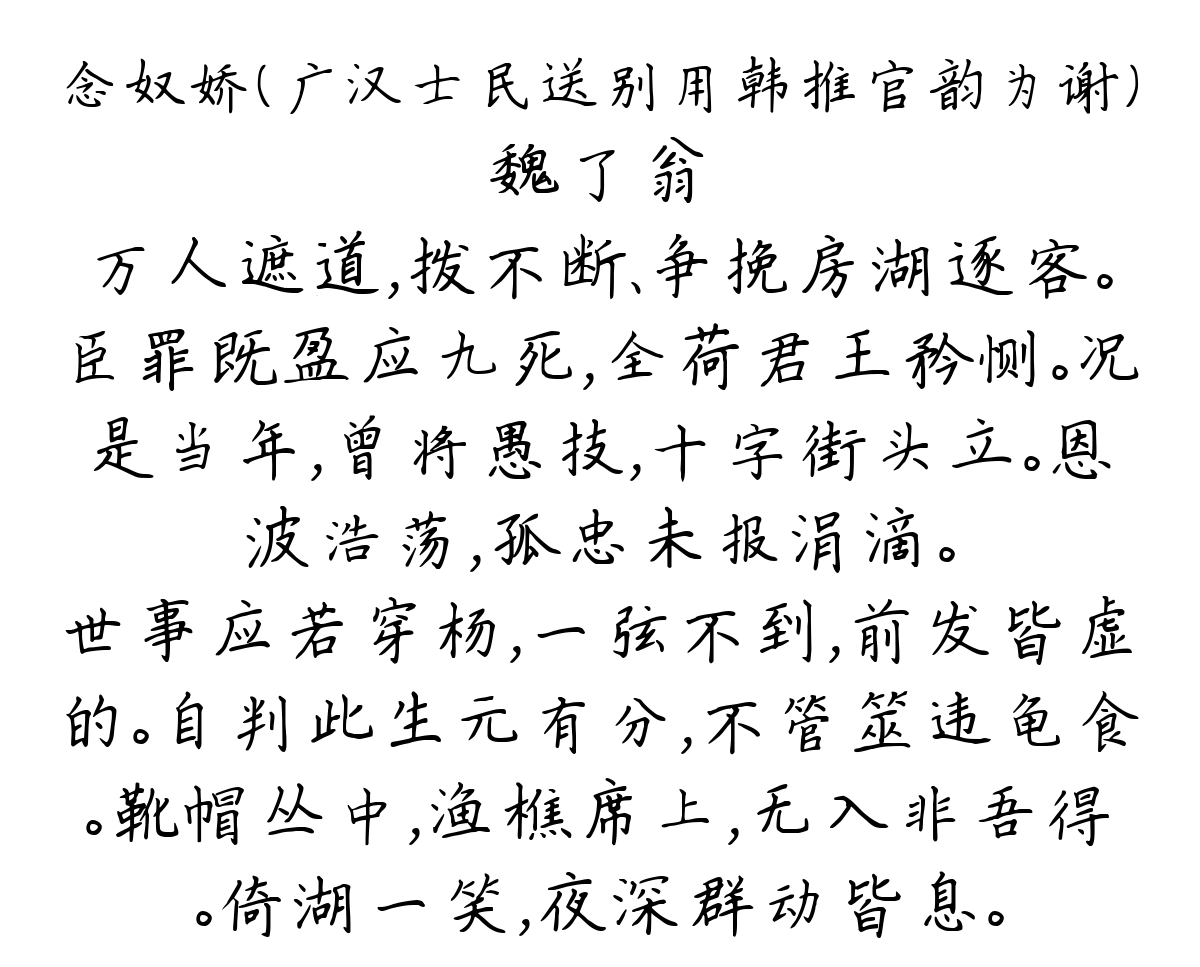 念奴娇(广汉士民送别用韩推官韵为谢)
魏了翁
万人遮道,拨不断、争挽房湖逐客。
臣罪既盈应九死,全荷君王矜恻。况
是当年,曾将愚技,十字街头立。恩
波浩荡,孤忠未报涓滴。
世事应若穿杨,一弦不到,前发皆虚
的。自判此生元有分,不管筮违龟食
。靴帽丛中,渔樵席上,无入非吾得
。倚湖一笑,夜深群动皆息。